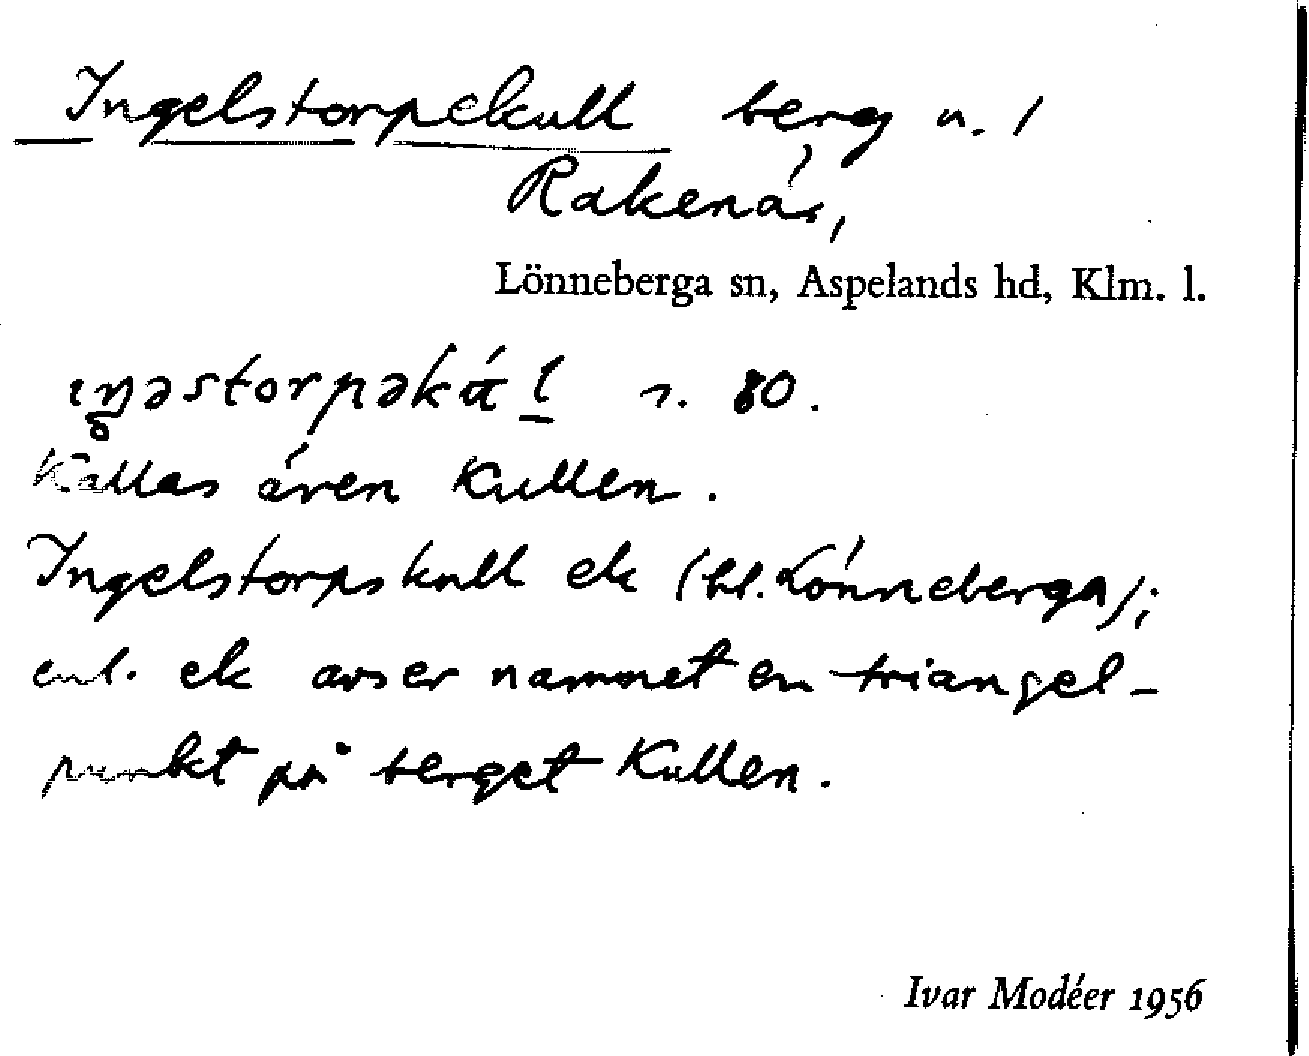 Ingelstorpekull berg n. /
Rakenäs,
Lönneberga sn, Aspelands hd, Klm. l.
ıŋəstorpəkɑ́l s. 80.
Kallas även Kullen.
Ingelstorpskull ek (bl. Lönneberga);
enl. ek avser namnet en triangel-
punkt på berget Kullen.
Ivar Modéer 1956